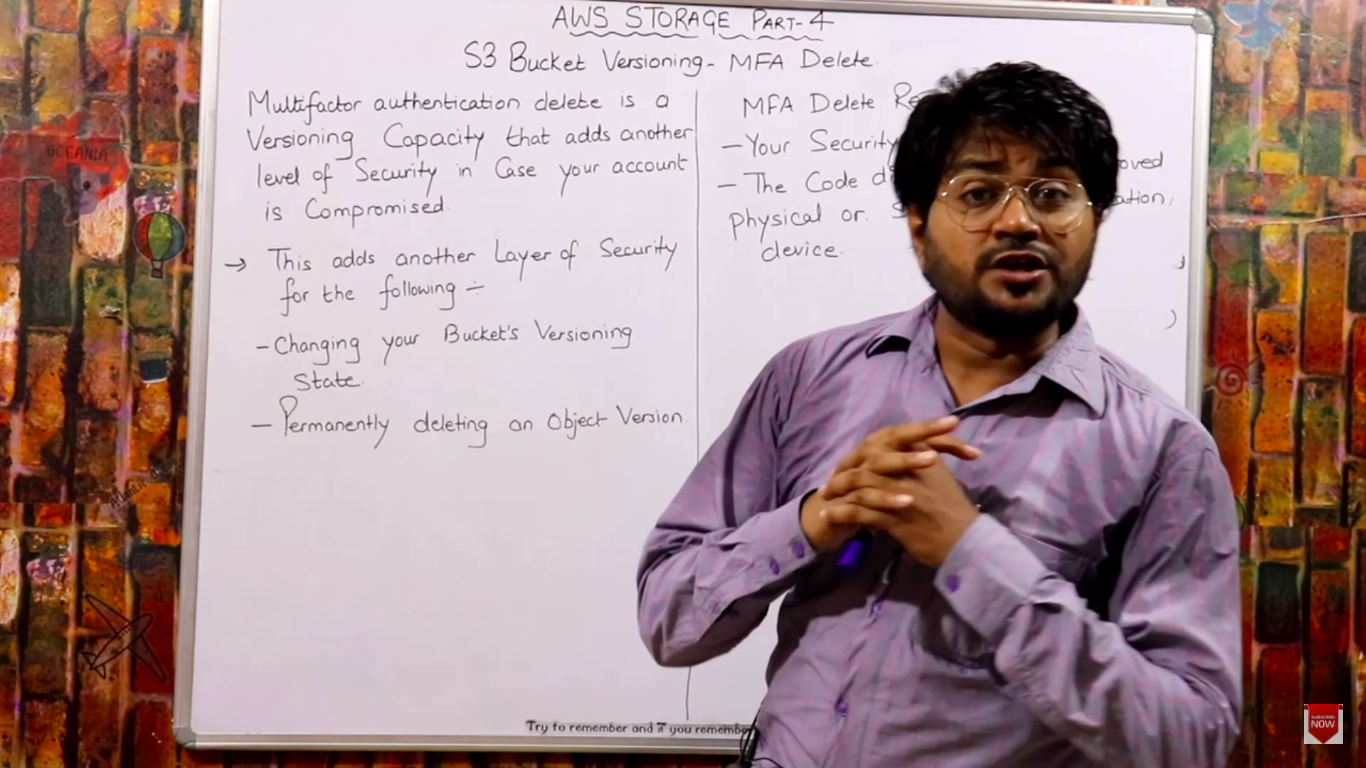 AWS STORAGE PART-4
S3 Bucket Versioning - MFA Delete.
Multifactor authentication delete is a
Versioning Capacity that adds another
level of Security in Case your account
is Compromised.
→ This adds another Layer of Security
for the following ÷
- Changing your Bucket's Versioning
State.
- Permanently deleting an Object Version.
MFA Delete
- Your Security
- The Code
physical or
device.
OCEANIA
Try to remember and if you
SUBSCRIBE
NOW